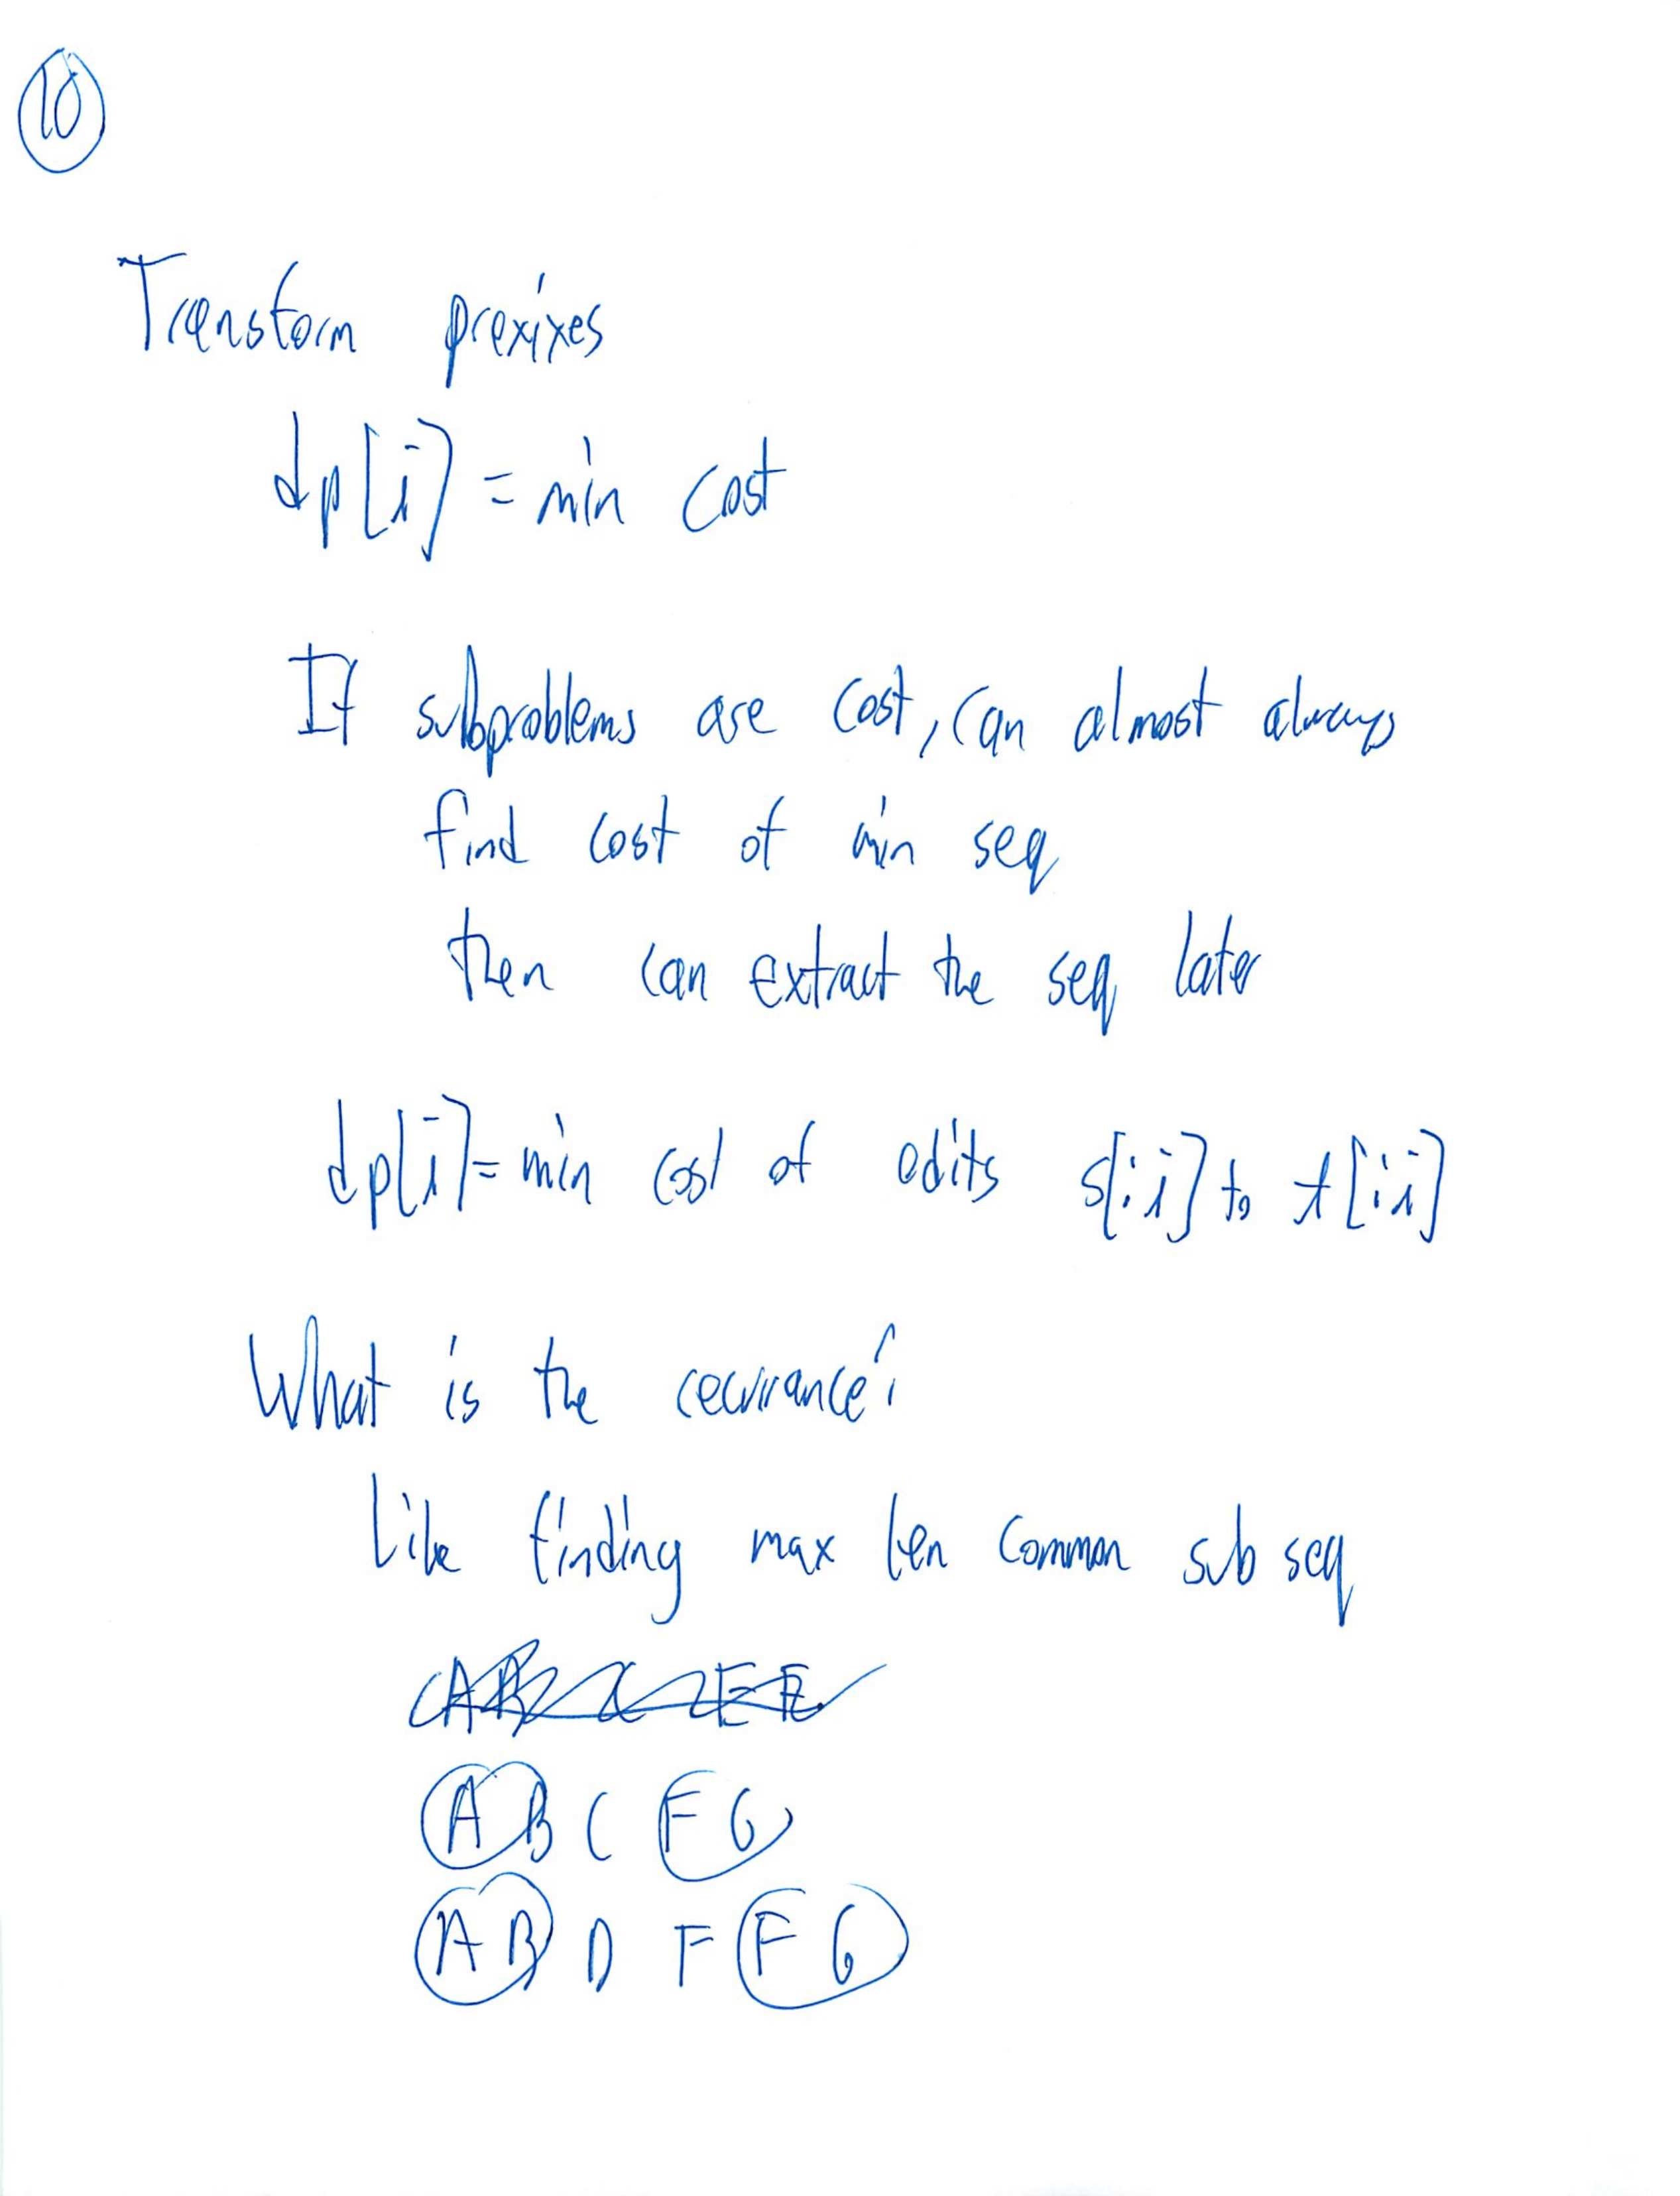 10
Transform prexixes
dp[i] = min cost
If subproblems are cost, can almost always
find cost of min seq
then can extract the seq later
dp[i] = min cost of edits s[:i] to t[:i]
What is the recurrance?
Like finding max len common sub seq
A B C F G
A B D F F G